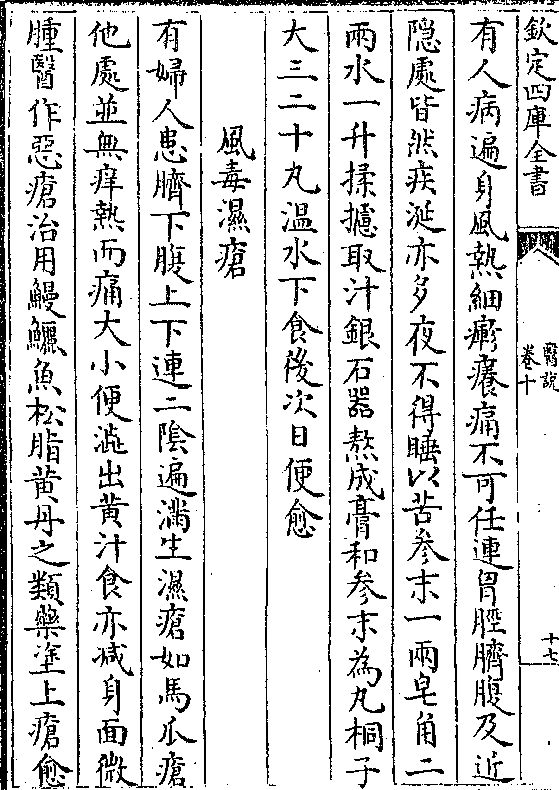 欽定四庫全書
醫說
卷十
十七
有人病遍身風熱細疹癢痛不可任連胷脛臍腹及近
隐處皆然痰涎亦多夜不得睡以苦參末一兩皂角二
兩水一升揉攄取汁銀石器熬成膏和參末為丸桐子
大三二十丸溫水下食後次日便愈
風毒濕瘡
有婦人患臍下腹上下連二陰遍滿生濕瘡如馬瓜瘡
他處並無痒熱而痛大小便澁出黄汁食亦减身面微
腫醫作惡瘡治用鰻鱺魚松脂黄丹之類藥塗上瘡愈